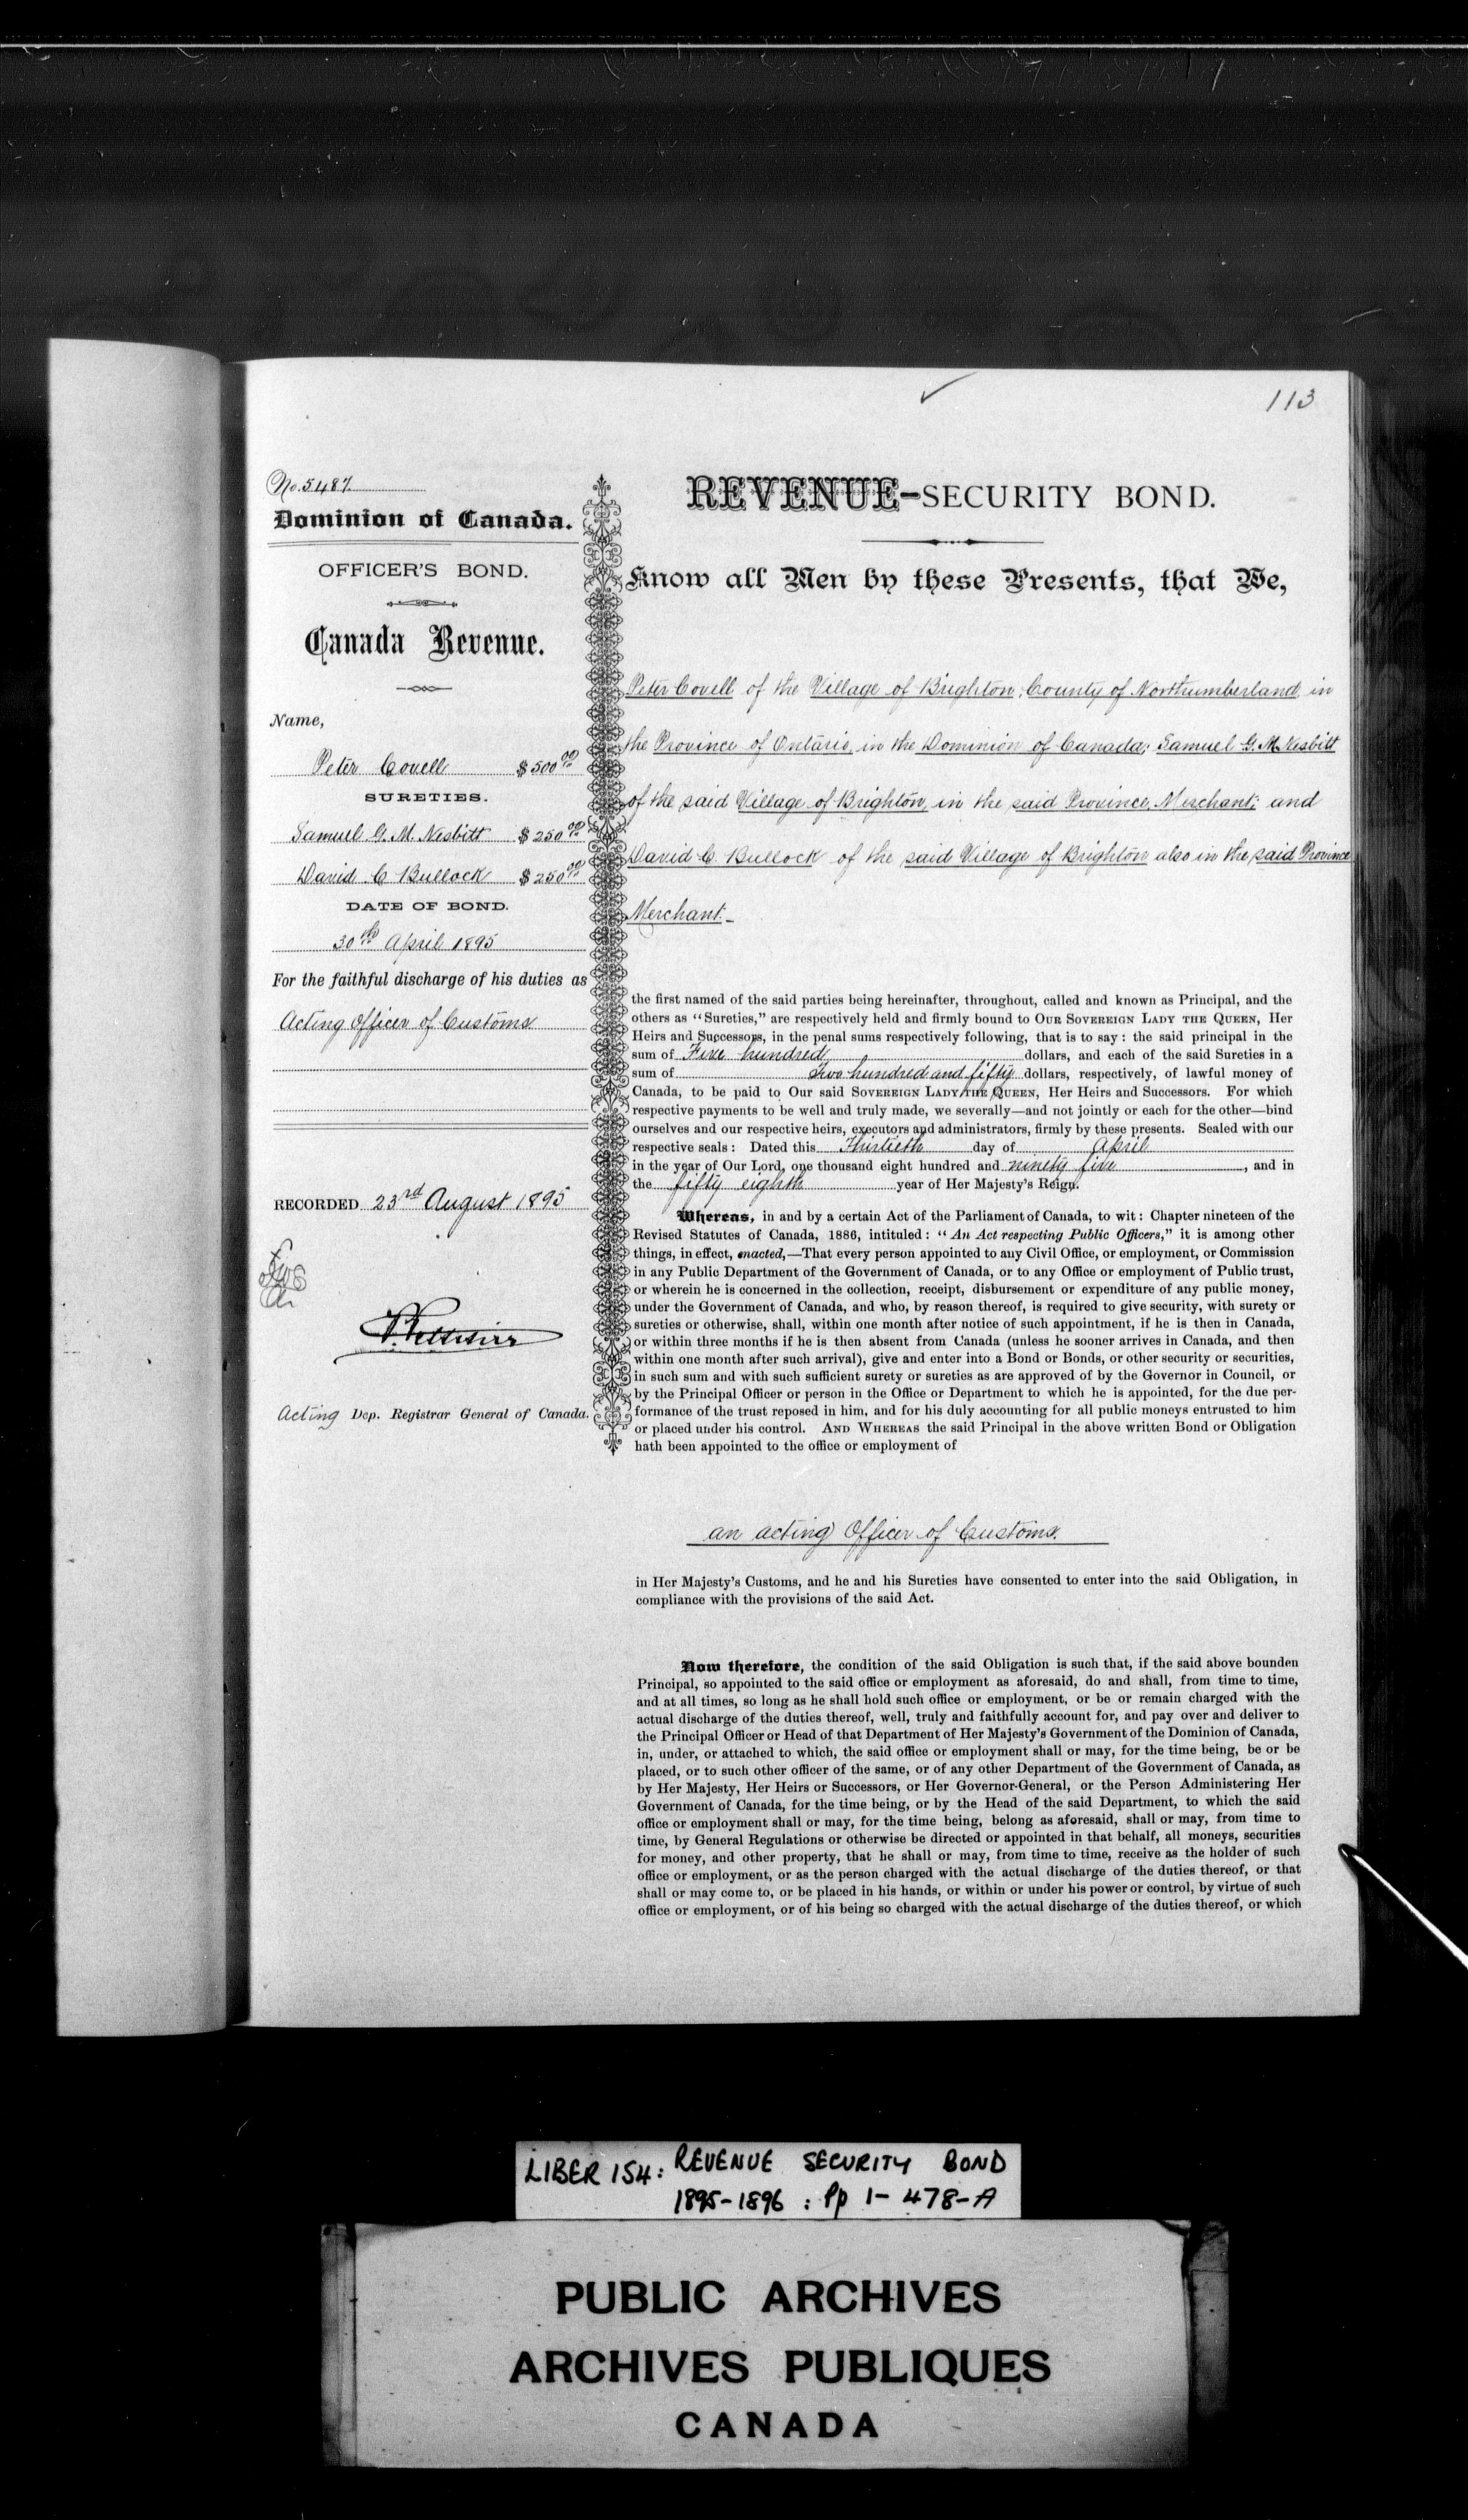 113
No. 5487
Dominion of Canada.
OFFICER'S BOND.
Canada Revenue.
Name,
Peter Covell $500 00
SURETIES.
Samuel G. M. Nesbitt $250 00
David C Bullock $250 00
DATE OF BOND.
30th April 1895
For the faithful discharge of his duties as
Acting Officer of Customs
RECORDED 23rd August 1895
Acting Dep. Registrar General of Canada.
REVENUE-SECURITY BOND.
Know all Men by these Presents, that We,
Peter Covell of the Village of Brighton, County of Northumberland, in
the Province of Ontario, in the Dominion of Canada; Samuel G. M. Nesbitt
of the said Village of Brighton, in the said Province, Merchant; and
David C. Bullock of the said Village of Brighton also in the said Province
Merchant.
the first named of the said parties being hereinafter, throughout, called and known as Principal, and the
others as "Sureties," are respectively held and firmly bound to OUR SOVEREIGN LADY THE QUEEN, Her
Heirs and Successors, in the penal sums respectively following, that is to say: the said principal in the
sum of Five hundred dollars, and each of the said Sureties in a
sum of Two hundred and fifty dollars, respectively, of lawful money of
Canada, to be paid to Our said SOVEREIGN LADY THE QUEEN, Her Heirs and Successors. For which
respective payments to be well and truly made, we severally—and not jointly or each for the other—bind
ourselves and our respective heirs, executors and administrators, firmly by these presents. Sealed with our
respective seals: Dated this Thirtieth day of April
in the year of Our Lord, one thousand eight hundred and ninety five, and in
the fifty eighth year of Her Majesty's Reign.
Whereas, in and by a certain Act of the Parliament of Canada, to wit: Chapter nineteen of the
Revised Statutes of Canada, 1886, intituled: "An Act respecting Public Officers," it is among other
things, in effect, enacted,—That every person appointed to any Civil Office, or employment, or Commission
in any Public Department of the Government of Canada, or to any Office or employment of Public trust,
or wherein he is concerned in the collection, receipt, disbursement or expenditure of any public money,
under the Government of Canada, and who, by reason thereof, is required to give security, with surety or
sureties or otherwise, shall, within one month after notice of such appointment, if he is then in Canada,
or within three months if he is then absent from Canada (unless he sooner arrives in Canada, and then
within one month after such arrival), give and enter into a Bond or Bonds, or other security or securities,
in such sum and with such sufficient surety or sureties as are approved of by the Governor in Council, or
by the Principal Officer or person in the Office or Department to which he is appointed, for the due per-
formance of the trust reposed in him, and for his duly accounting for all public moneys entrusted to him
or placed under his control. AND WHEREAS the said Principal in the above written Bond or Obligation
hath been appointed to the office or employment of
an acting Officer of Customs.
in Her Majesty's Customs, and he and his Sureties have consented to enter into the said Obligation, in
compliance with the provisions of the said Act.
Now therefore, the condition of the said Obligation is such that, if the said above bounden
Principal, so appointed to the said office or employment as aforesaid, do and shall, from time to time,
and at all times, so long as he shall hold such office or employment, or be or remain charged with the
actual discharge of the duties thereof, well, truly and faithfully account for, and pay over and deliver to
the Principal Officer or Head of that Department of Her Majesty's Government of the Dominion of Canada,
in, under, or attached to which, the said office or employment shall or may, for the time being, be or be
placed, or to such other officer of the same, or of any other Department of the Government of Canada, as
by Her Majesty, Her Heirs or Successors, or Her Governor-General, or the Person Administering Her
Government of Canada, for the time being, or by the Head of the said Department, to which the said
office or employment shall or may, for the time being, belong as aforesaid, shall or may, from time to
time, by General Regulations or otherwise be directed or appointed in that behalf, all moneys, securities
for money, and other property, that he shall or may, from time to time, receive as the holder of such
office or employment, or as the person charged with the actual discharge of the duties thereof, or that
shall or may come to, or be placed in his hands, or within or under his power or control, by virtue of such
office or employment, or of his being so charged with the actual discharge of the duties thereof, or which
LIBER 154: REVENUE SECURITY BOND
1895-1896 : Pp 1- 478-A
PUBLIC ARCHIVES
ARCHIVES PUBLIQUES
CANADA